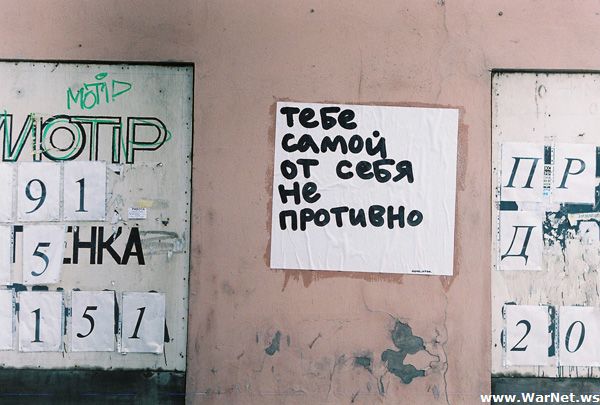 MOTIP
MOTIP
91
ЕНКА
5
151
тебе
самой
от себя
не
противно
ПР
Д
20
www.WarNet.ws